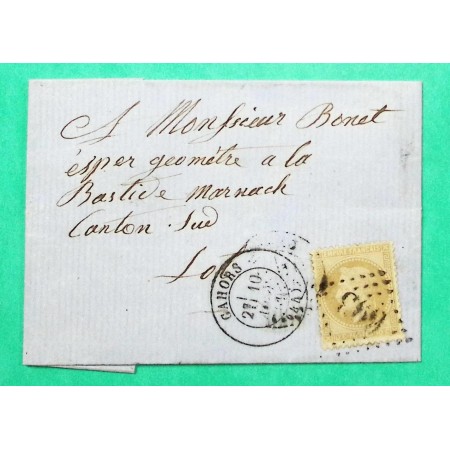 A Monsieur Bonet
ésper geométre a la
Bastide Marnach
Canton Sud
Lot
CAHORS
10